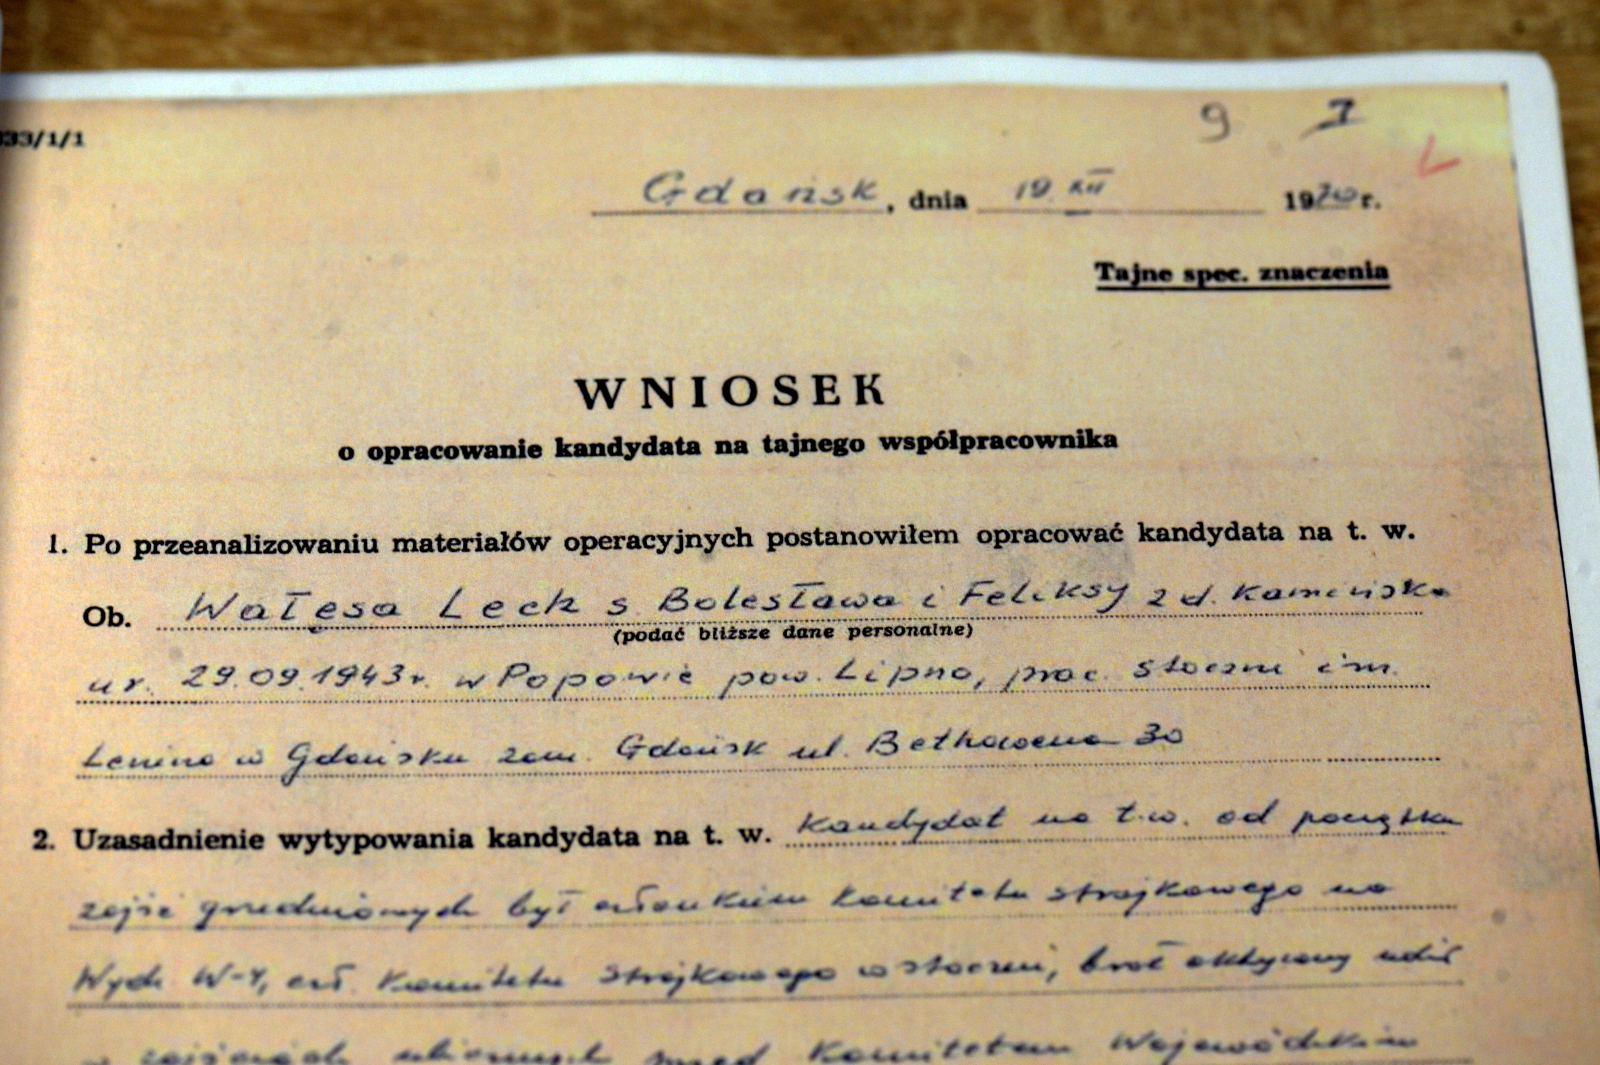 333/1/1
9 7
Gdańsk, dnia 19 XII 1970 r.
Tajne spec. znaczenia
WNIOSEK
o opracowanie kandydata na tajnego współpracownika
1. Po przeanalizowaniu materiałów operacyjnych postanowiłem opracować kandydata na t. w.
Ob. Wałęsa Lech s. Bolesława i Feliksy z d. Kamieńska
(podać bliższe dane personalne)
ur. 29.09.1943r. w Popowie pow. Lipno, prac. stoczni im.
Lenina w Gdańsku zam. Gdańsk ul. Bethowena 30
2. Uzasadnienie wytypowania kandydata na t. w. Kandydat na t.w. od początku
zajść grudniowych był członkiem Komitetu strajkowego na
Wydz. W-4, czł. Komitetu Strajkowego w stoczni, brał aktywny udział
w zajściach ulicznych przed Komitetem Wojewódzkim